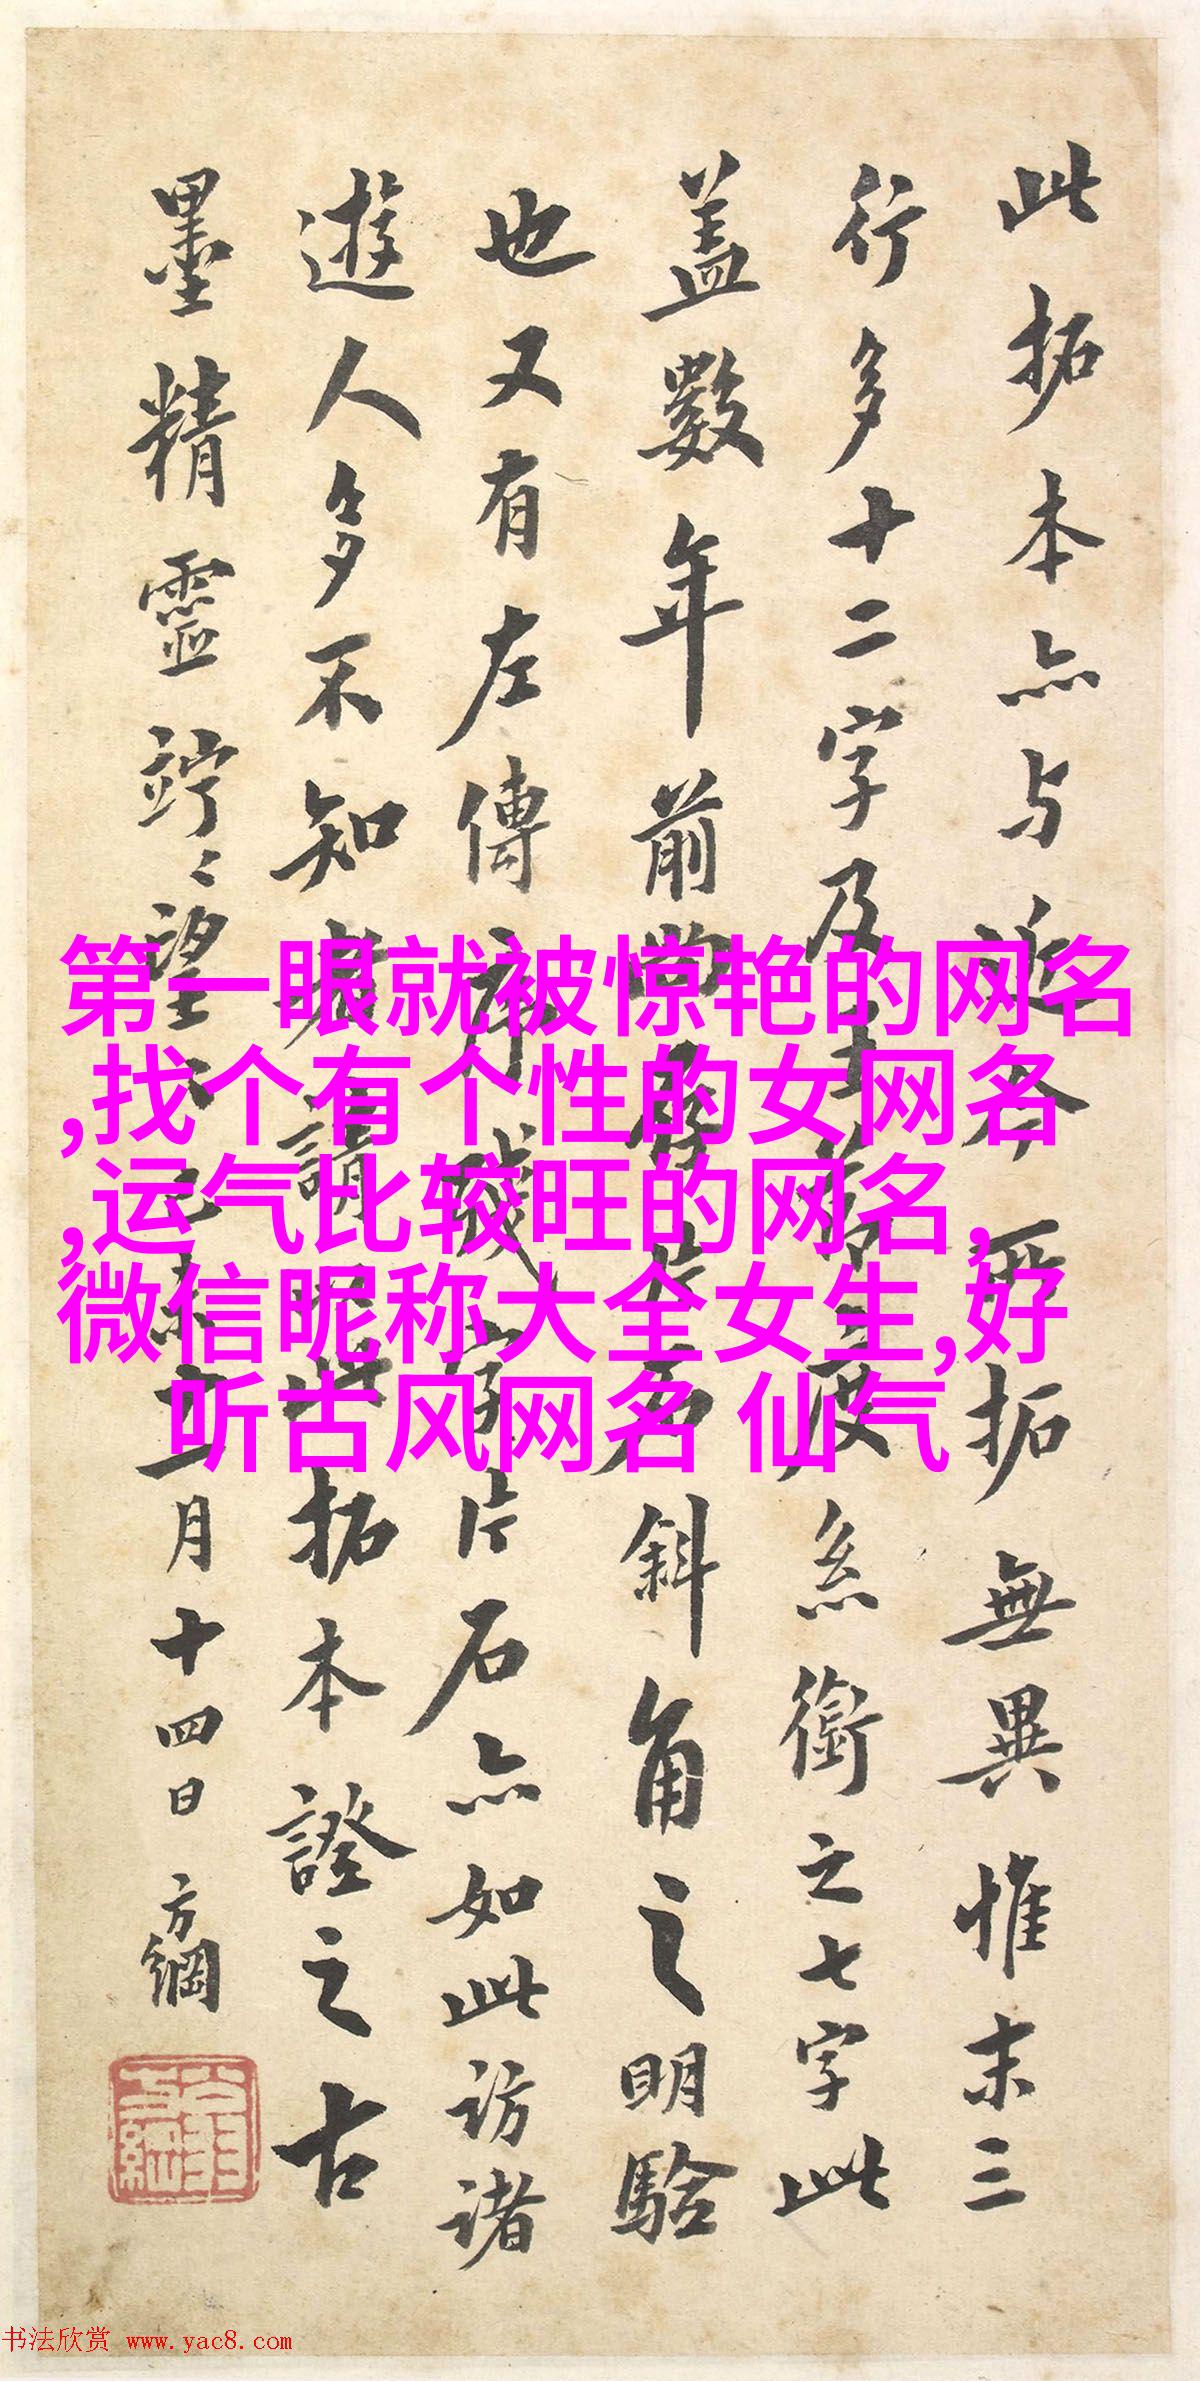 此拓本亦与近今所拓無異惟末三
行多十二字及系銜之七字此
盖數年前尚片石斜角之明驗
也又有左傳序殘字片石亦如此訪諸
遊人多不知者請此拓本證之古
墨精靈竚〻望己未月十四日 方綱
第一眼就被惊艳的网名
,找个有个性的女网名
,运气比较旺的网名,
微信昵称大全女生,好
听古风网名 仙气
书法欣赏 www.yac8.com